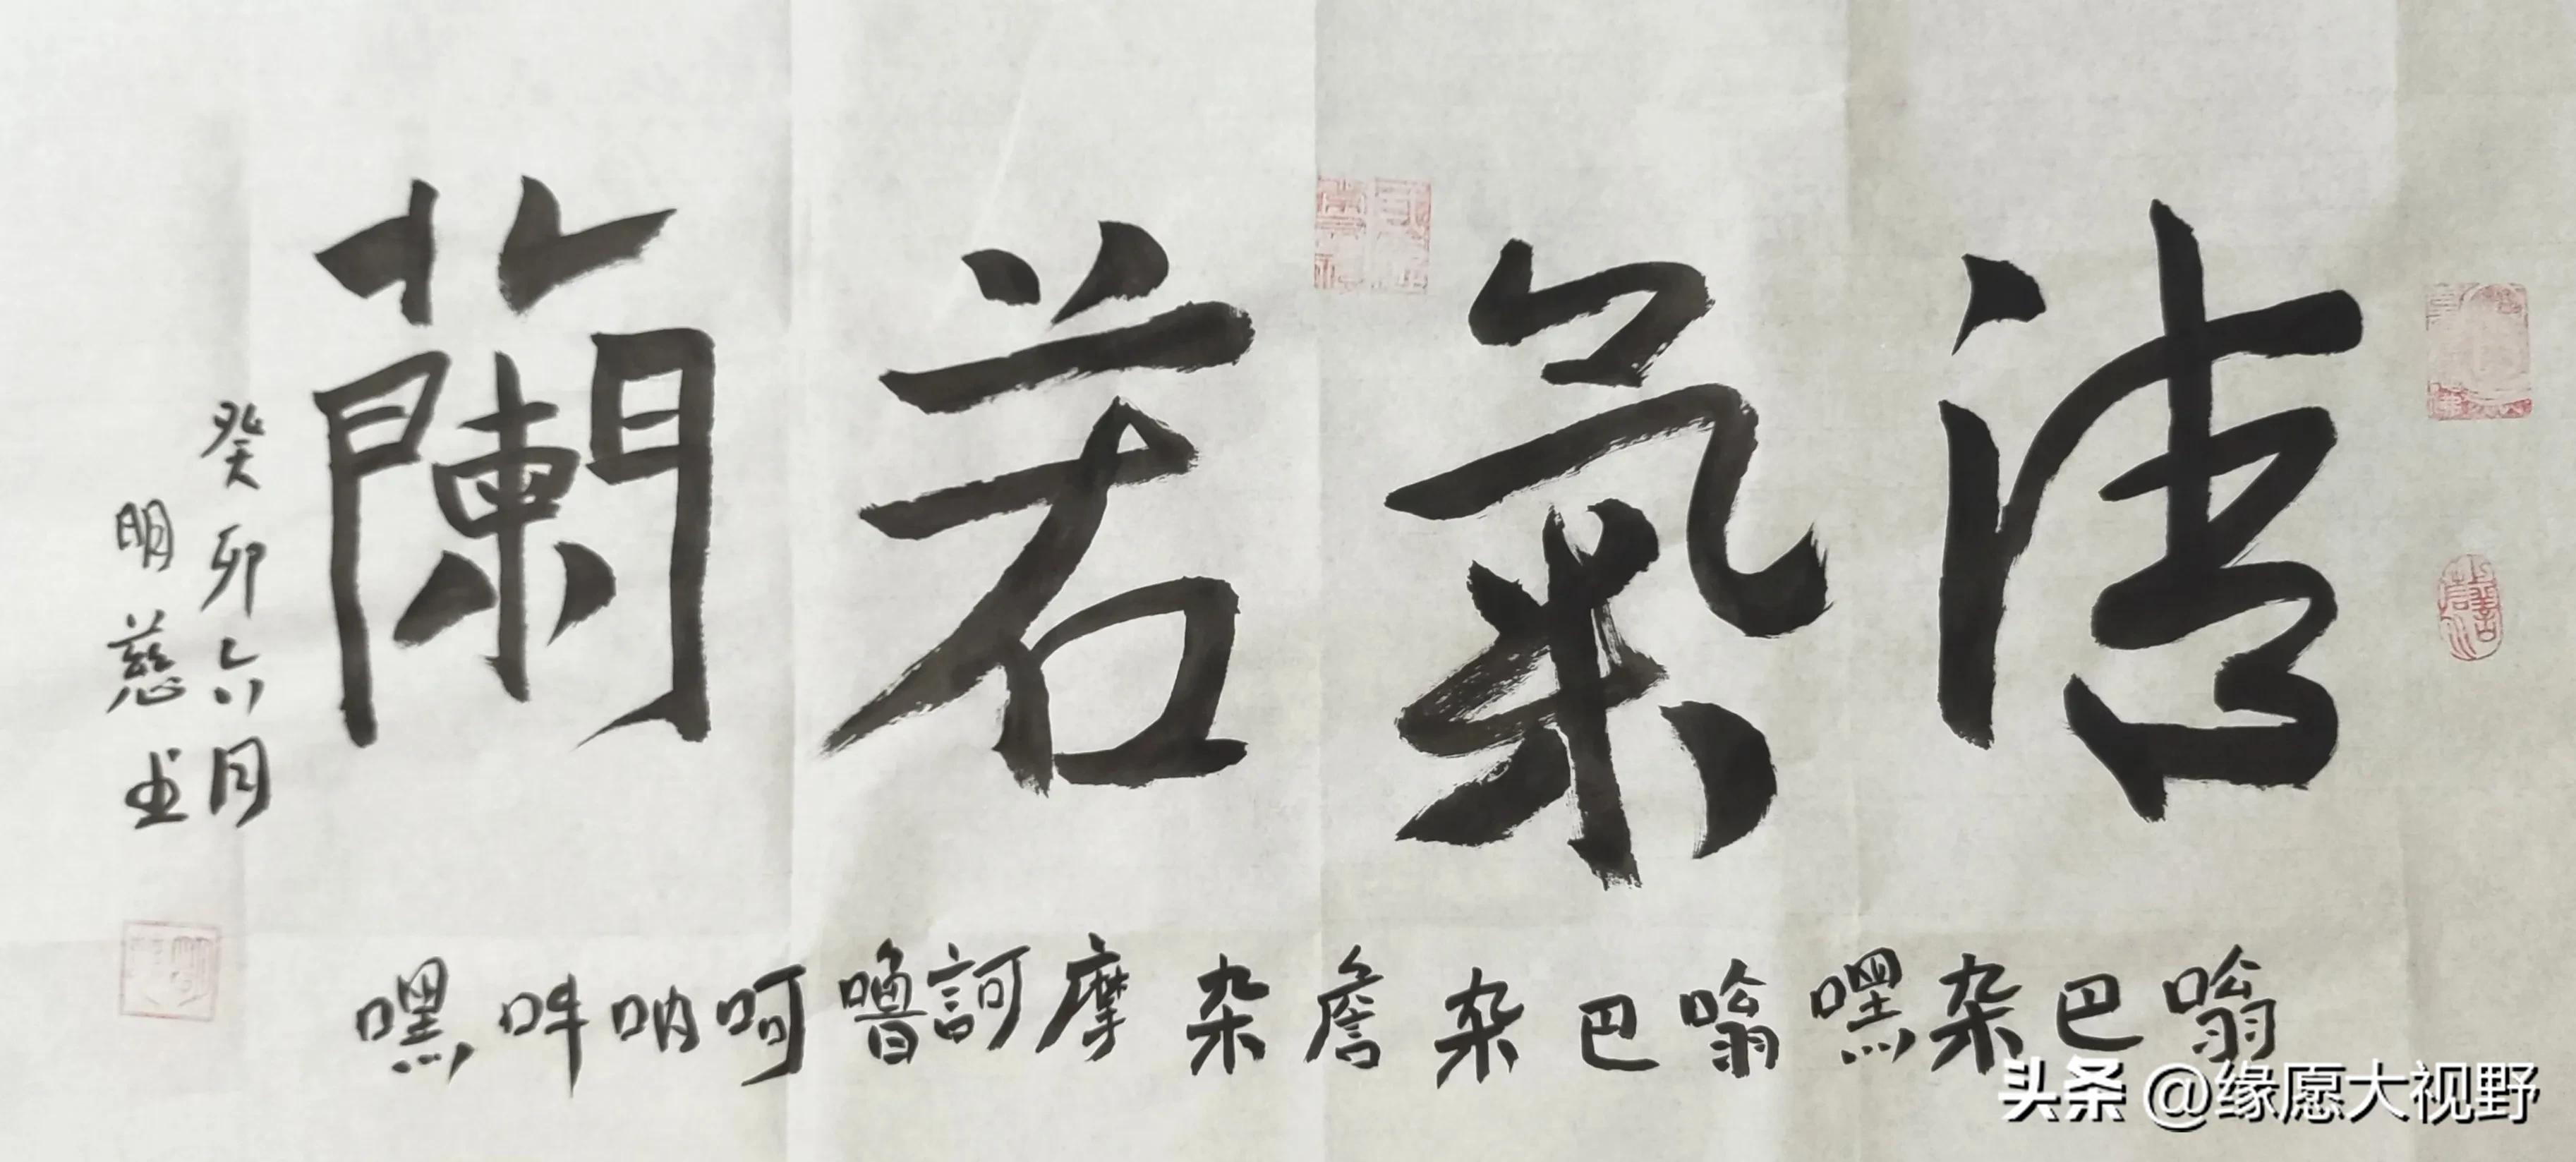 清氣若蘭
癸卯六月
明慈书
嗡巴杂嘿嗡巴杂詹杂摩訶嚕呵呐吽嘿
头条 @缘愿大视野